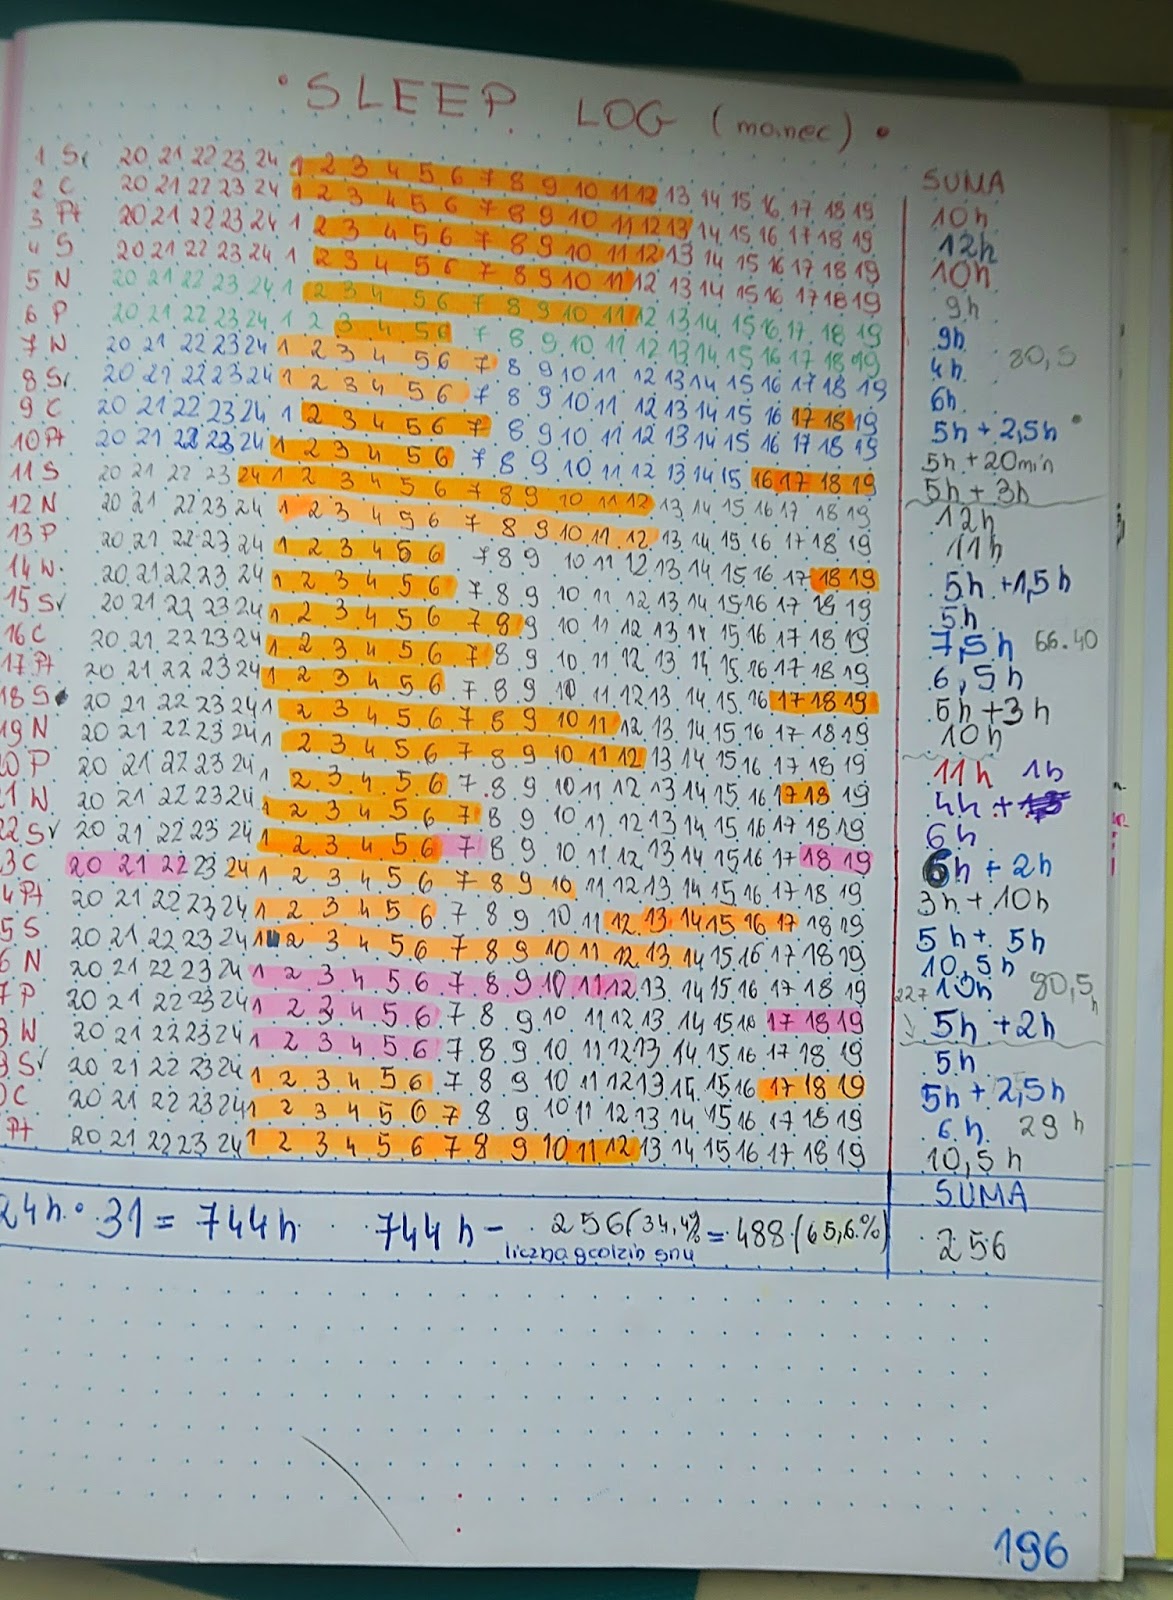 • SLEEP LOG (marzec) •
SUMA
1 Śr 20 21 22 23 24 1 2 3 4 5 6 7 8 9 10 11 12 13 14 15 16 17 18 19 10h
2 C 20 21 22 23 24 1 2 3 4 5 6 7 8 9 10 11 12 13 14 15 16 17 18 19 12h
3 Pt 20 21 22 23 24 1 2 3 4 5 6 7 8 9 10 11 12 13 14 15 16 17 18 19 10h
4 S 20 21 22 23 24 1 2 3 4 5 6 7 8 9 10 11 12 13 14 15 16 17 18 19 9h
5 N 20 21 22 23 24 1 2 3 4 5 6 7 8 9 10 11 12 13 14 15 16 17 18 19 9h
6 P 20 21 22 23 24 1 2 3 4 5 6 7 8 9 10 11 12 13 14 15 16 17 18 19 4h 80,5
7 W 20 21 22 23 24 1 2 3 4 5 6 7 8 9 10 11 12 13 14 15 16 17 18 19 6h
8 Śr 20 21 22 23 24 1 2 3 4 5 6 7 8 9 10 11 12 13 14 15 16 17 18 19 5h + 2,5h
9 C 20 21 22 23 24 1 2 3 4 5 6 7 8 9 10 11 12 13 14 15 16 17 18 19 5h + 20min
10 Pt 20 21 22 23 24 1 2 3 4 5 6 7 8 9 10 11 12 13 14 15 16 17 18 19 5h + 3h
11 S 20 21 22 23 24 1 2 3 4 5 6 7 8 9 10 11 12 13 14 15 16 17 18 19 12h
12 N 20 21 22 23 24 1 2 3 4 5 6 7 8 9 10 11 12 13 14 15 16 17 18 19 11h
13 P 20 21 22 23 24 1 2 3 4 5 6 7 8 9 10 11 12 13 14 15 16 17 18 19 5h + 1,5h
14 W 20 21 22 23 24 1 2 3 4 5 6 7 8 9 10 11 12 13 14 15 16 17 18 19 5h
15 Śr 20 21 22 23 24 1 2 3 4 5 6 7 8 9 10 11 12 13 14 15 16 17 18 19 7,5h 66.40
16 C 20 21 22 23 24 1 2 3 4 5 6 7 8 9 10 11 12 13 14 15 16 17 18 19 6,5h
17 Pt 20 21 22 23 24 1 2 3 4 5 6 7 8 9 10 11 12 13 14 15 16 17 18 19 5h + 3h
18 S 20 21 22 23 24 1 2 3 4 5 6 7 8 9 10 11 12 13 14 15 16 17 18 19 10h
19 N 20 21 22 23 24 1 2 3 4 5 6 7 8 9 10 11 12 13 14 15 16 17 18 19 11h 1h
0 P 20 21 22 23 24 1 2 3 4 5 6 7 8 9 10 11 12 13 14 15 16 17 18 19 4h +
1 W 20 21 22 23 24 1 2 3 4 5 6 7 8 9 10 11 12 13 14 15 16 17 18 19 6h
22 Śr 20 21 22 23 24 1 2 3 4 5 6 7 8 9 10 11 12 13 14 15 16 17 18 19 6h + 2h
3 C 20 21 22 23 24 1 2 3 4 5 6 7 8 9 10 11 12 13 14 15 16 17 18 19 3h + 10h
4 Pt 20 21 22 23 24 1 2 3 4 5 6 7 8 9 10 11 12 13 14 15 16 17 18 19 5h + 5h
5 S 20 21 22 23 24 1 2 3 4 5 6 7 8 9 10 11 12 13 14 15 16 17 18 19 10,5h
6 N 20 21 22 23 24 1 2 3 4 5 6 7 8 9 10 11 12 13 14 15 16 17 18 19 227 10h 80,5h
7 P 20 21 22 23 24 1 2 3 4 5 6 7 8 9 10 11 12 13 14 15 16 17 18 19 5h + 2h
8 W 20 21 22 23 24 1 2 3 4 5 6 7 8 9 10 11 12 13 14 15 16 17 18 19 5h
9 Śr 20 21 22 23 24 1 2 3 4 5 6 7 8 9 10 11 12 13 14 15 16 17 18 19 5h + 2,5h
0 C 20 21 22 23 24 1 2 3 4 5 6 7 8 9 10 11 12 13 14 15 16 17 18 19 6h 29h
Pt 20 21 22 23 24 1 2 3 4 5 6 7 8 9 10 11 12 13 14 15 16 17 18 19 10,5h
SUMA
24h • 31 = 744h 744h - 256 (34,4%) = 488 (65,6%) 256
liczba godzin snu
196